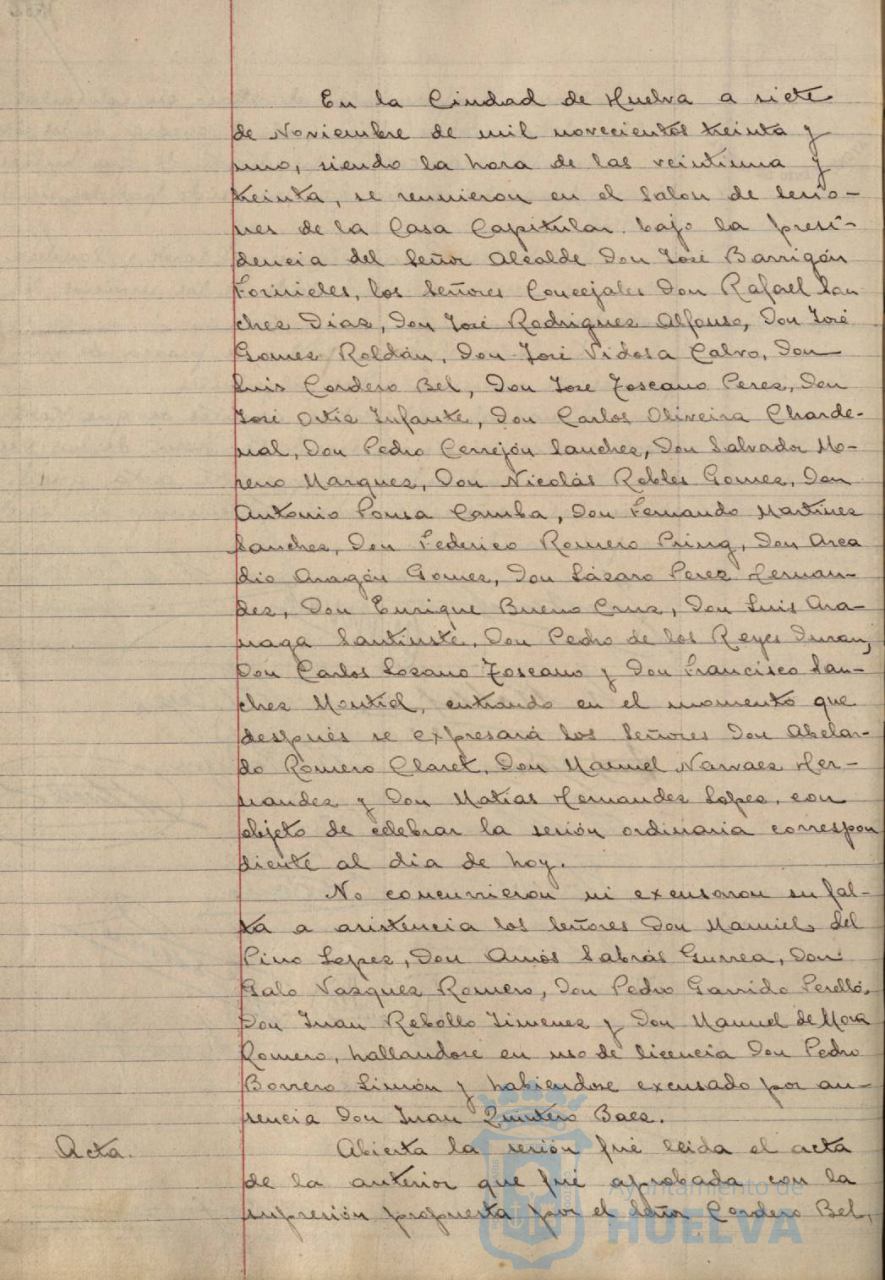 En la Ciudad de Huelva a siete
de Noviembre de mil novecientos treinta y
uno, siendo la hora de las veintiuna y
treinta, se reunieron en el Salon de Sesio-
nes de la Casa Capitular bajo la presi-
dencia del Señor Alcalde Don José Barrigón
Fornieles, los Señores Concejales Don Rafael San
chez Díaz, Don José Rodriguez Alfonso, Don José
Gomez Roldán, Don José Vidosa Calvo, Don
Luis Cordero Bel, Don Jose Toscano Perez, Don
José Ortiz Infante, Don Carlos Oliveira Charde-
nal, Don Pedro Cerrejón Sanchez, Don Salvador Mo-
reno Marquez, Don Nicolás Robles Gomez, Don
Antonio Ponsa Camba, Don Fernando Martinez
Sanchez, Don Federico Romero Pring, Don Arca
dio Aragón Gomez, Don Lázaro Perez Hernan-
dez, Don Enrique Bueno Cruz, Don Luis Ara-
naga Santiuste, Don Pedro de los Reyes Duran,
Don Carlos Lozano Toscano y Don Francisco San-
chez Montiel, entrando en el momento que
después se expresará los Señores Don Abelar-
do Romero Claret, Don Manuel Narvaez Her-
nandez y Don Matías Hernandez Lopez, con
objeto de celebrar la sesión ordinaria correspon
diente al dia de hoy.
No concurrieron ni excusaron su fal-
ta a asistencia los Señores Don Manuel del
Pino Lopez, Don Amós Sabrás Gurrea, Don
Galo Vazquez Romero, Don Pedro Garrido Perelló,
Don Juan Rebollo Jimenez y Don Manuel de Mora
Romero, hallandose en uso de licencia Don Pedro
Borrero Limón y habiendose excusado por au-
sencia Don Juan Quintero Baez.
Acta. Abierta la sesión fué leida el acta
de la anterior que fué aprobada con la
supresión propuesta por el Señor Cordero Bel,
Ayuntamiento de
HUELVA